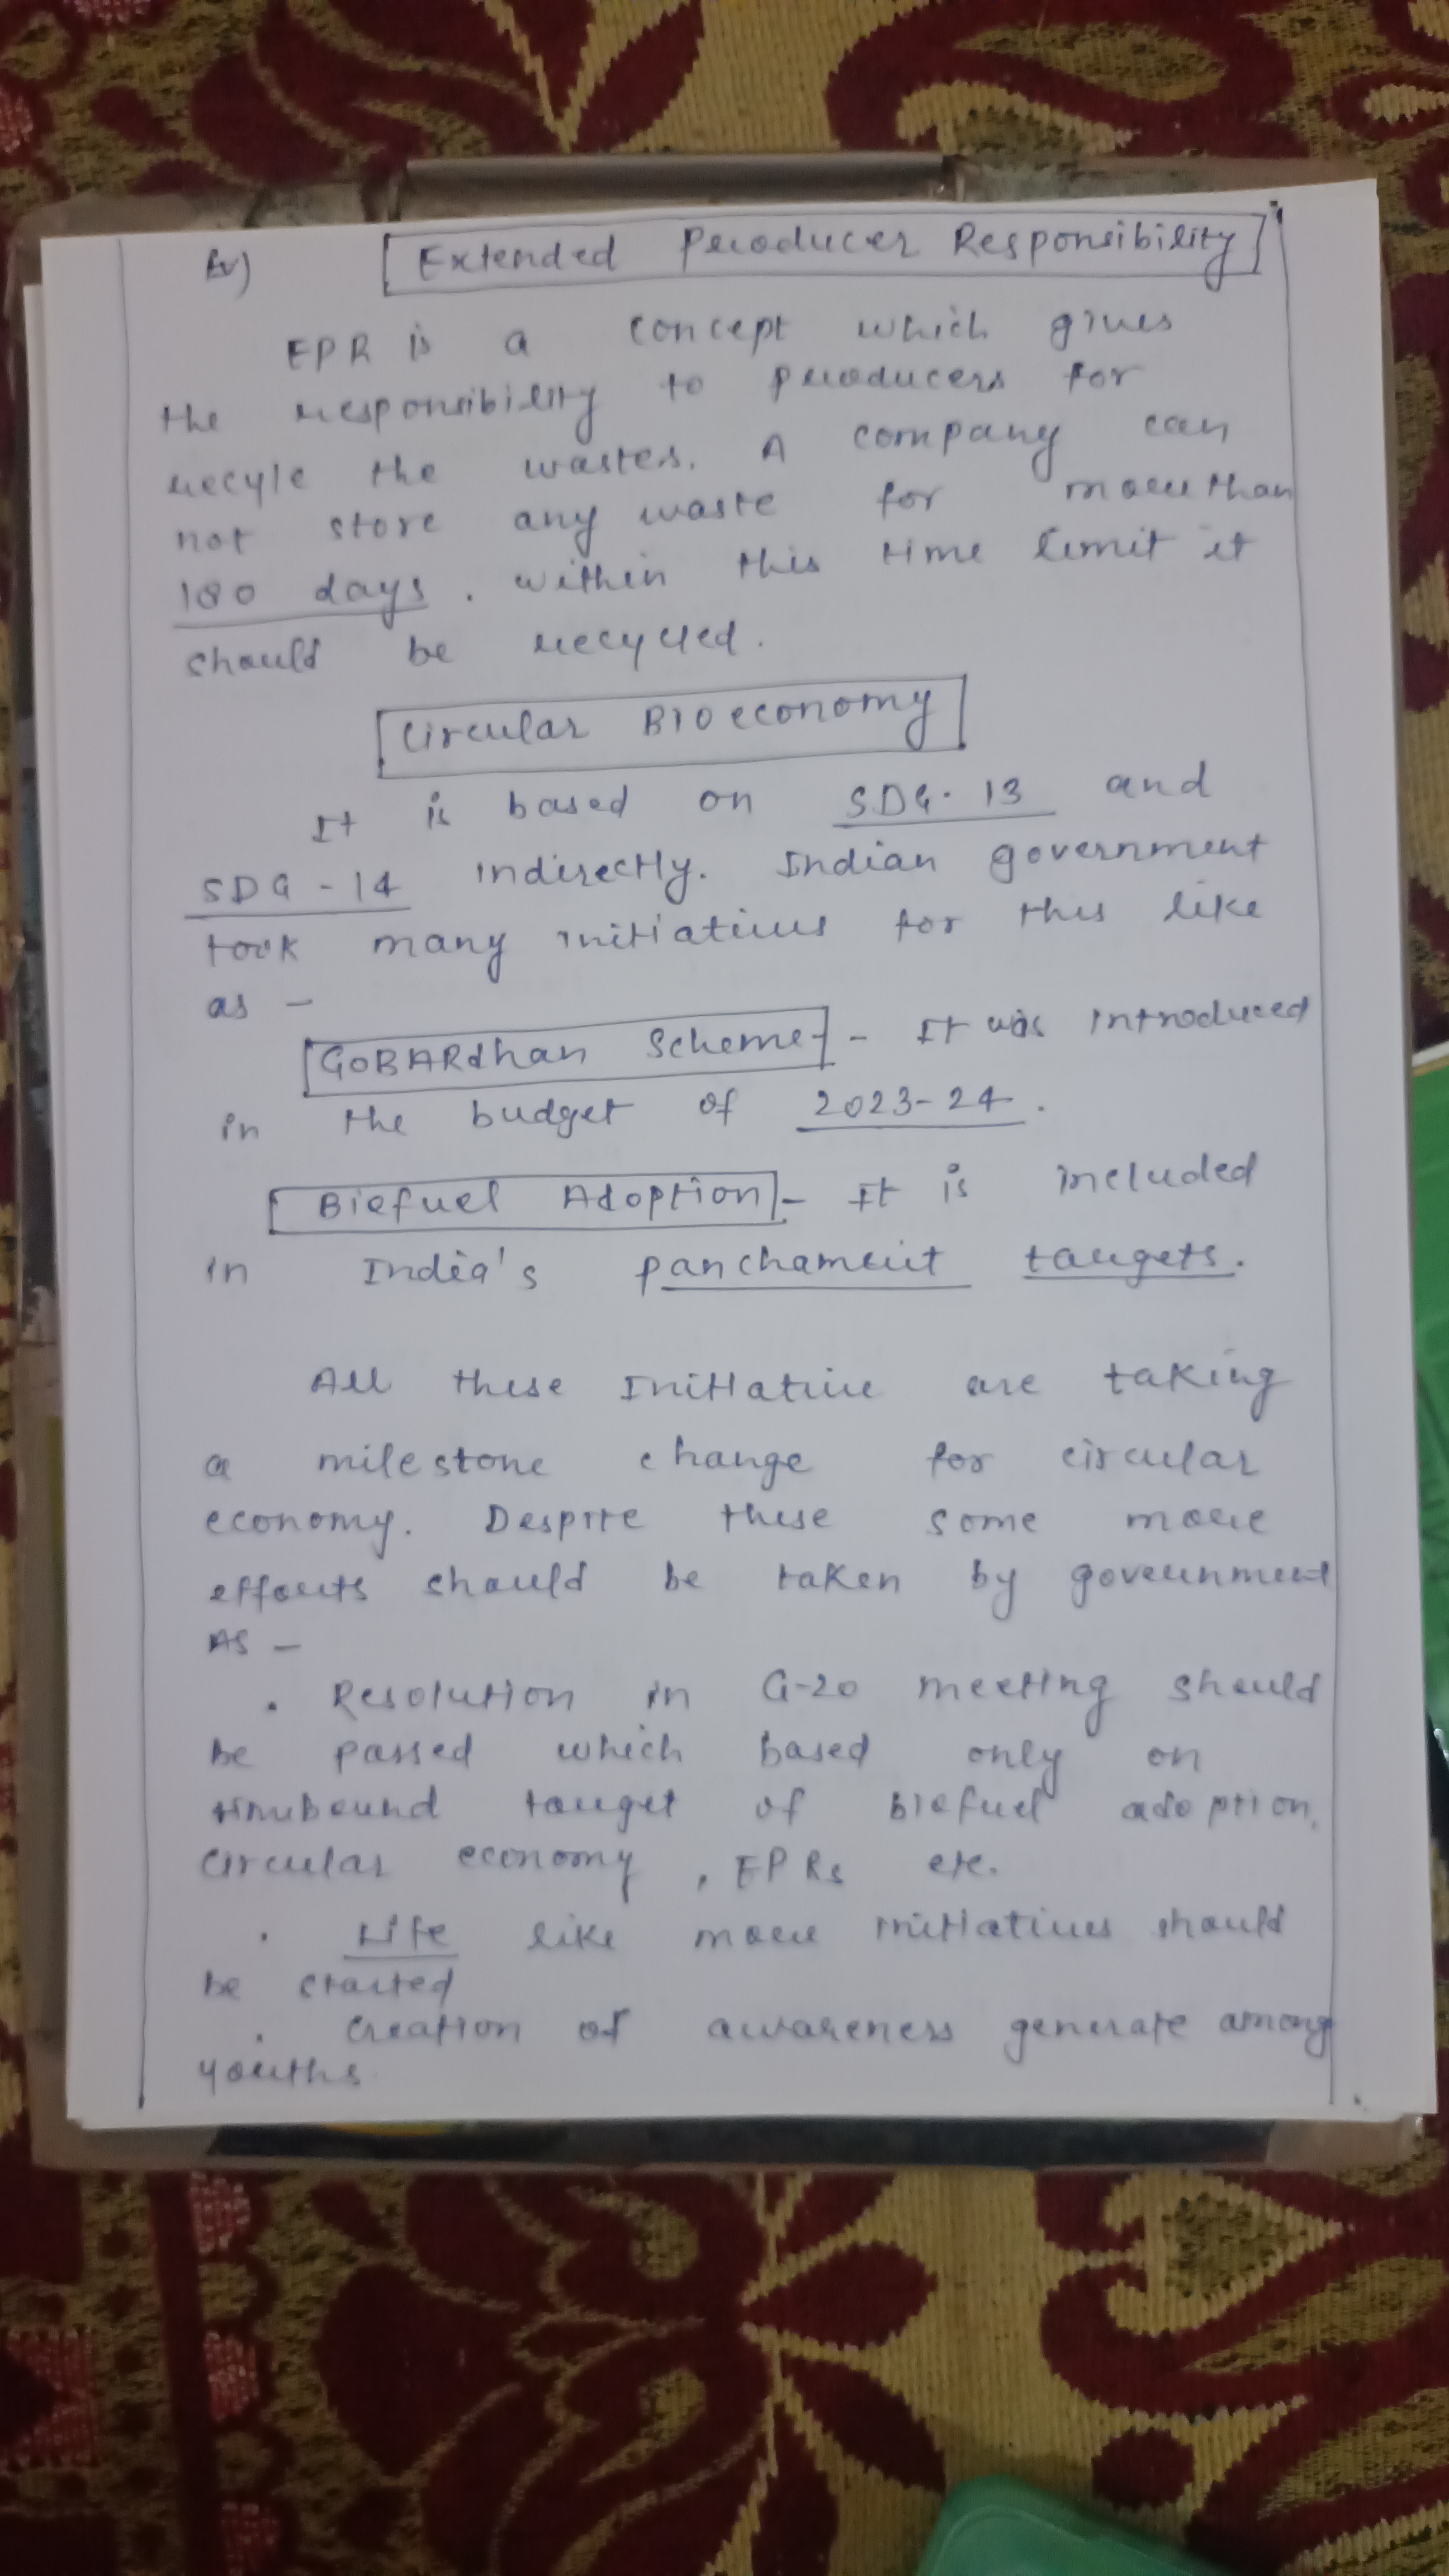 iv) Extended Producer Responsibility
EPR is a concept which gives
the responsibility to producers for
recyle the wastes. A company can
not store any waste for more than
180 days. within this time limit it
should be recycled.
Circular Bioeconomy
It is based on SDG-13 and
SDG-14 indirectly. Indian government
took many initiatives for this like
as -
GOBARdhan Scheme - It was introduced
in the budget of 2023-24.
Biefuel Adoption - It is included
in India's panchamrit targets.
All these Initiative are taking
a milestone change for circular
economy. Despite these some more
efforts should be taken by government
AS -
. Resolution in G-20 meeting should
be passed which based only on
timebound target of biefuel adoption,
circular economy, EPRs etc.
. Life like more initiatives should
be started
. Creation of awareness generate among
youths